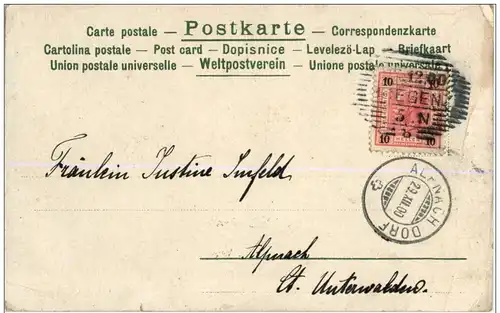 Carte postale — Postkarte — Correspondenzkarte
Cartolina postale — Post card — Dopisnice — Levelező-Lap — Briefkaart
Union postale universelle — Weltpostverein — Unione postale universale
10 10
12.00
EGEN
5 N
10 10
ALPNACH DORF
29.XII.00
Fräulein Justine Imfeld
Alpnach
Ct. Unterwalden.